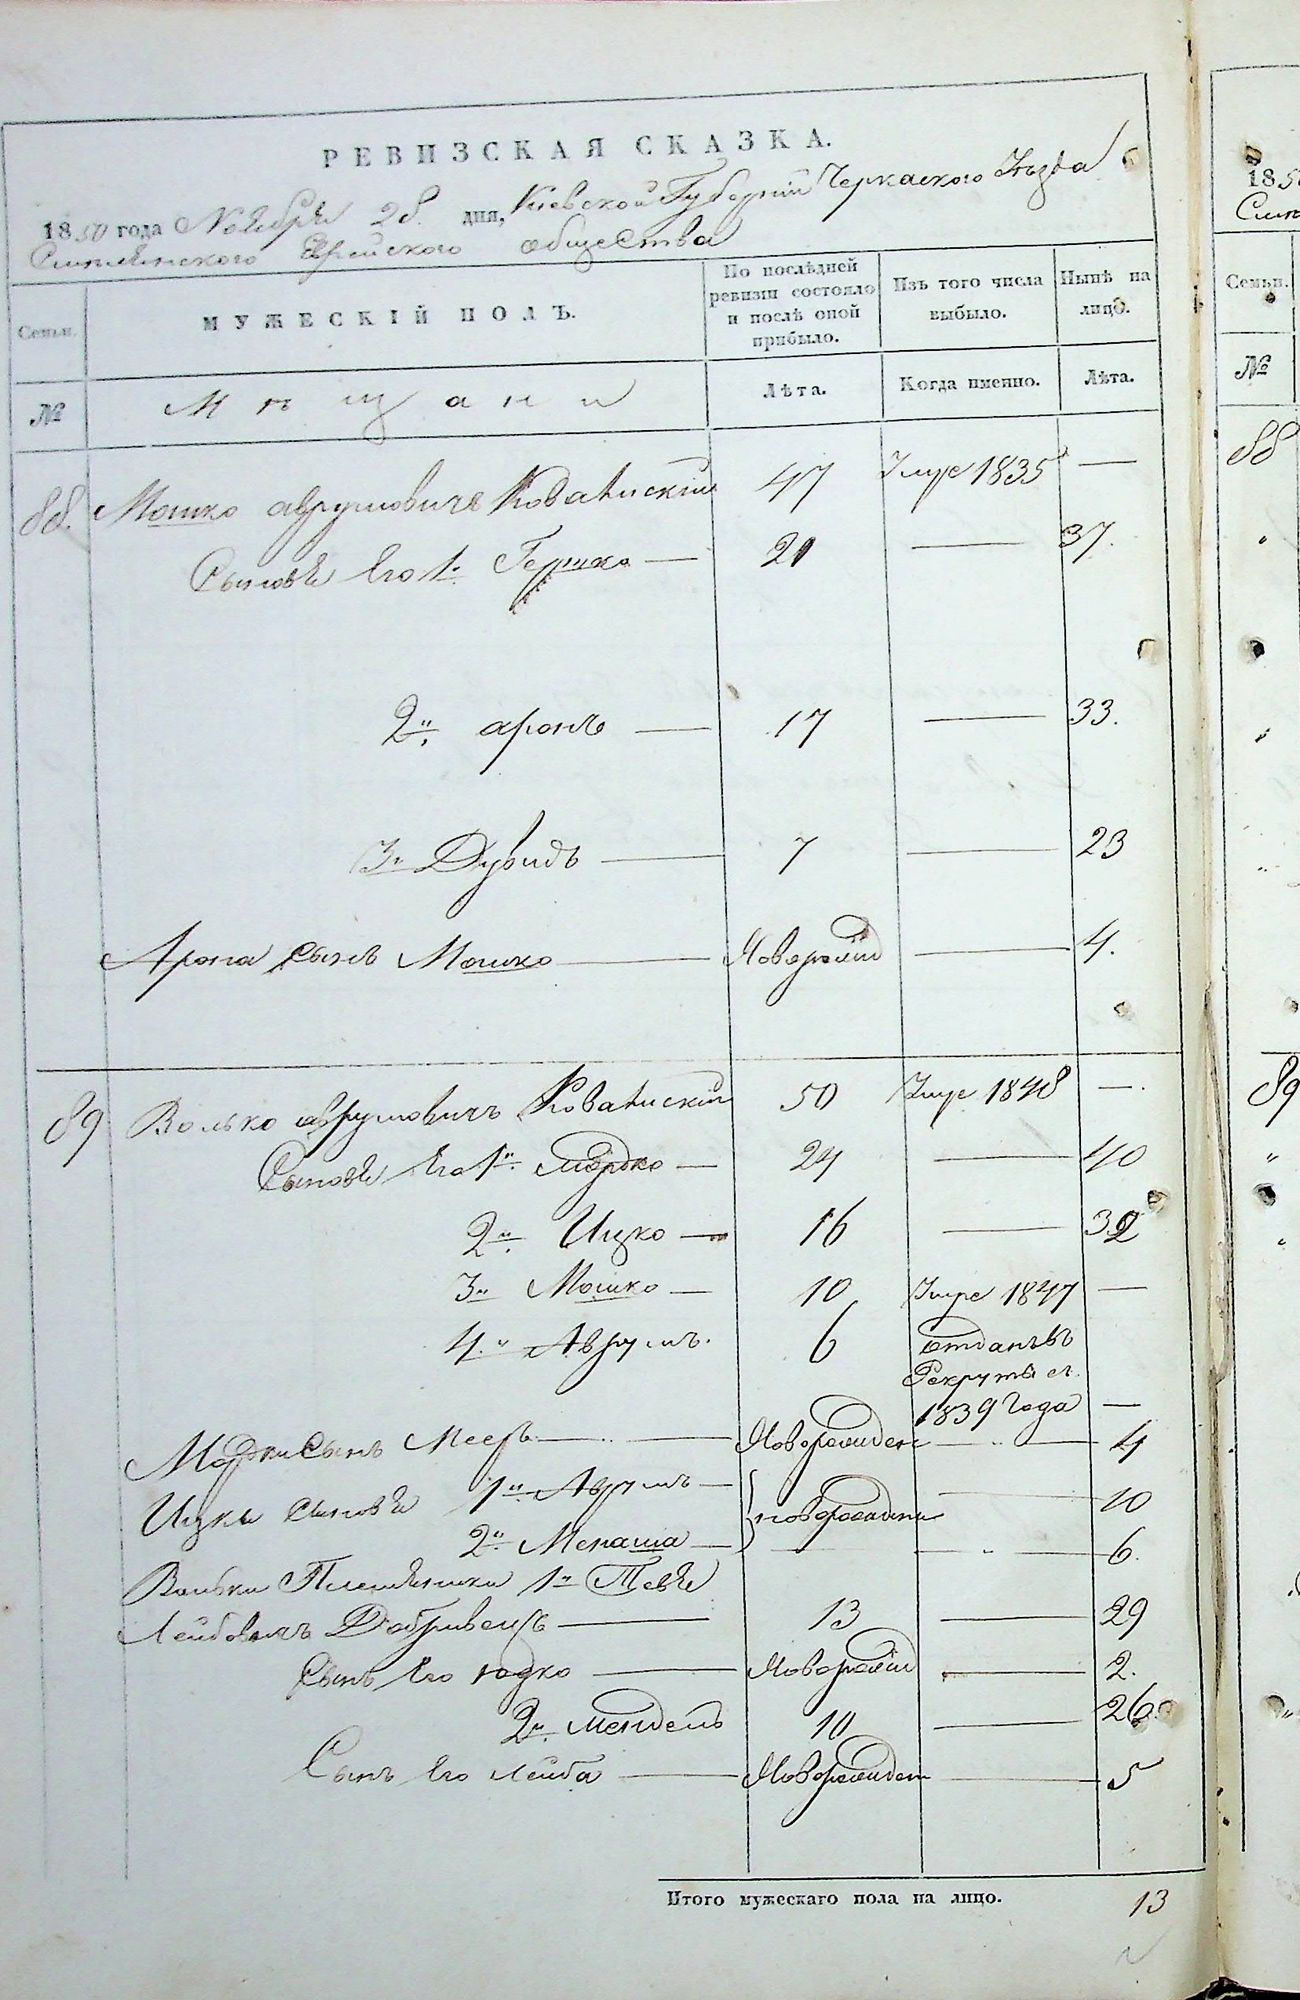 РЕВИЗСКАЯ СКАЗКА.
1850 года Ноября 28. дня, Киевской Губернии Черкаского Уезда
Смилянского Еврейского общества
Семьи.
МУЖЕСКІЙ ПОЛЪ.
По послѣдней ревизіи состояло и послѣ оной прибыло.
Изъ того числа выбыло.
Нынѣ на лицо.
№
Мѣщани
Лѣта.
Когда именно.
Лѣта.
88. Мошко аврумовичъ Ковальскій 47 Умре 1835 —
Сыновя Его 1й Гершко — 21 — 37.
2й аронъ — 17 — 33.
3й Дувидъ — 7 — 23
Арона сынъ Мошко — Новорожд — 4.
89 Волько аврумовичъ Ковальскій 50 Умре 1848 —
Сыновя Его 1й Мордко — 24 — 40
2й Ицко — 16 — 32
3й Мошко — 10 Умре 1847 —
4й Аврумъ. 6 отданъ въ
Рекруты съ
1839 года —
Мордки Сынъ Меер — Новорожден — 4
Ицки сыновя 1й Аврумъ — } новорождени — 10
2й Менаша — — " — 6.
Вольки Племянники 1й Тевя
Лейбовичъ Добривецъ — 13 — 29
Сынъ Его юдко — Новорожд — 2.
2й мендель 10 — 26.
Сынъ Его лейба — Новорожден — 5
Итого мужескаго пола на лицо. 13
1850
Смил
Семьи.
№
88
"
"
"
89
"
"
"